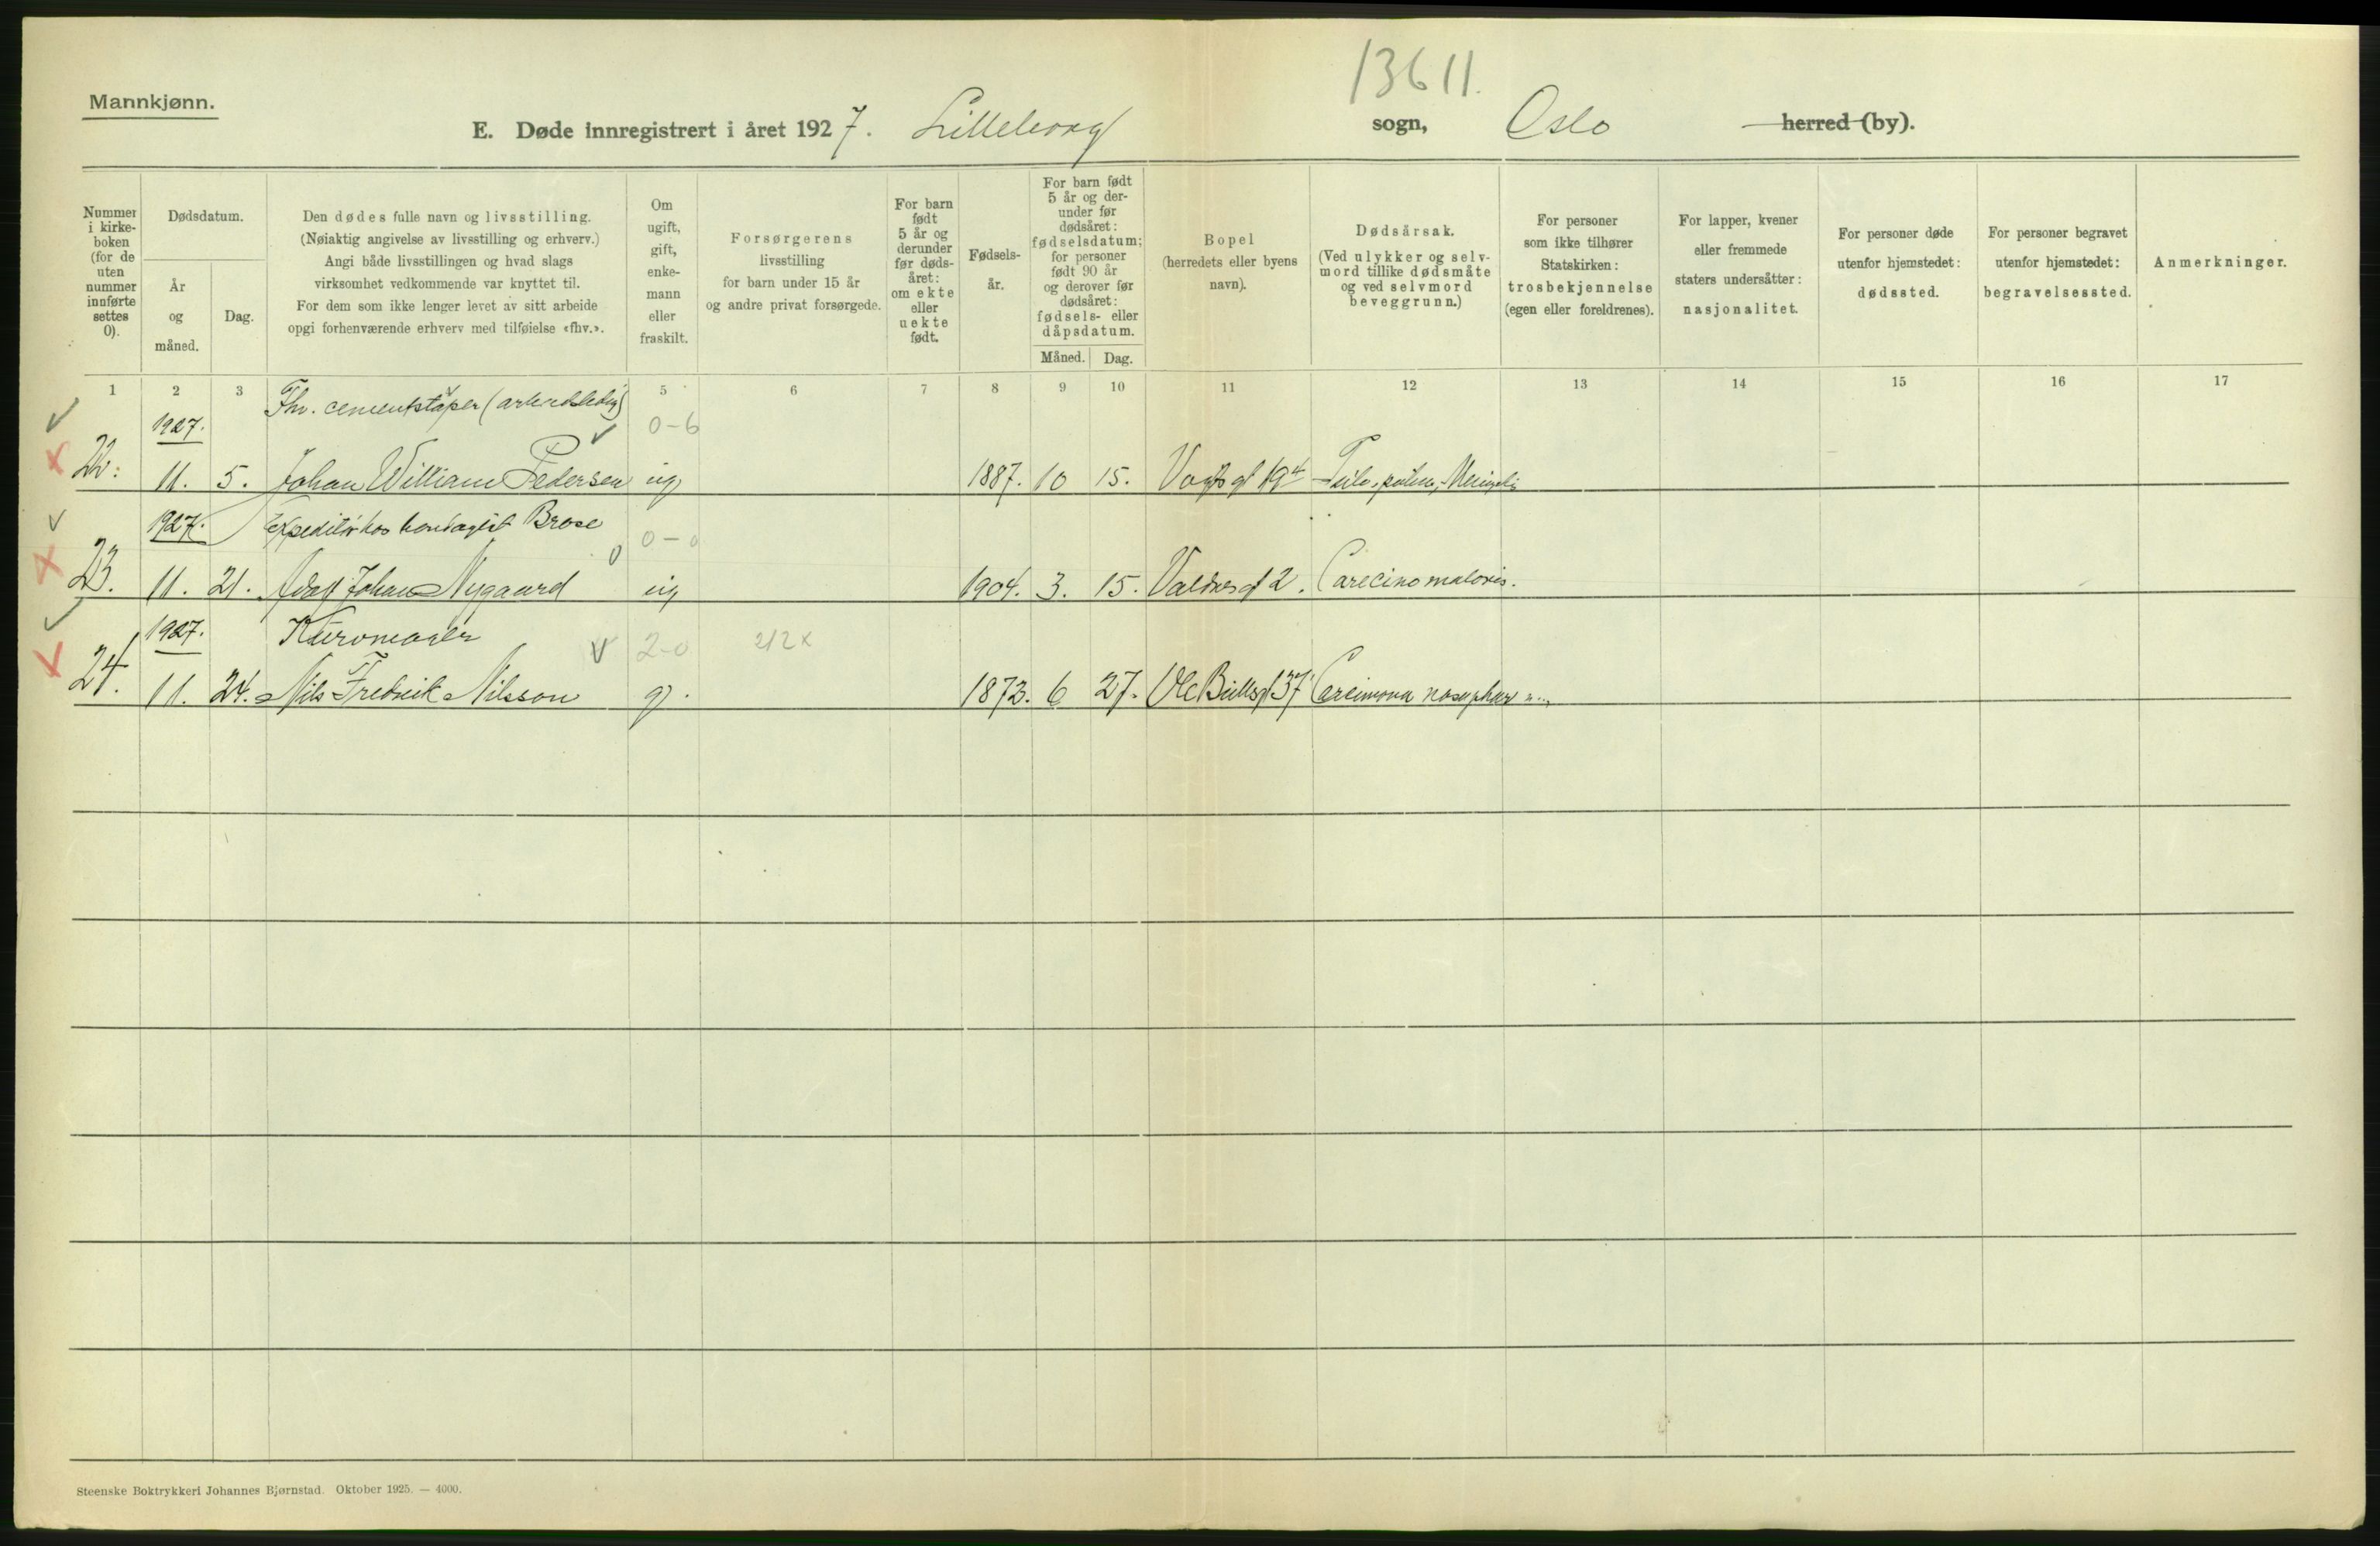 13611.
Mannkjønn.
E. Døde innregistrert i året 1927. Lilleborg sogn, Oslo herred (by).
Nummer i kirke-boken (for de uten nummer innførte settes 0).
Dødsdatum.
År og måned.
Dag.
Den dødes fulle navn og livsstilling.
(Nøiaktig angivelse av livsstilling og erhverv.)
Angi både livsstillingen og hvad slags
virksomhet vedkommende var knyttet til.
For dem som ikke lenger levet av sitt arbeide
opgi forhenværende erhverv med tilføielse «fhv.».
Om ugift, gift, enke-mann eller fraskilt.
Forsørgerens
livsstilling
for barn under 15 år
og andre privat forsørgede.
For barn født 5 år og derunder før døds-året: om ekte eller uekte født.
Fødsels-år.
For barn født 5 år og der-under før dødsåret: fødselsdatum; for personer født 90 år og derover før dødsåret: fødsels- eller dåpsdatum.
Måned. Dag.
Bopel
(herredets eller byens
navn).
Dødsårsak.
(Ved ulykker og selv-
mord tillike dødsmåte
og ved selvmord
beveggrunn.)
For personer
som ikke tilhører
Statskirken:
trosbekjennelse
(egen eller foreldrenes).
For lapper, kvener
eller fremmede
staters undersåtter:
nasjonalitet.
For personer døde
utenfor hjemstedet:
dødssted.
For personer begravet
utenfor hjemstedet:
begravelsessted.
Anmerkninger.
1 2 3 5 6 7 8 9 10 11 12 13 14 15 16 17
1927. Fhv. cementstøper (arbeidsledig) 0-6
22. 11. 5. Johan William Pedersen ug 1887. 10 15. Vogts gt 19
1927. Expeditør hos Brose 0-0
23. 11. 21. Adolf Johan Nygaard ug 1904. 3. 15. Valdresgt 2.
1927. 2-0 212x
24. 11. 24. Nils Fredrik Nilsson g. 1873. 6 27. Ole Bullsgt 37
Steenske Boktrykkeri Johannes Bjørnstad. Oktober 1925. — 4000.